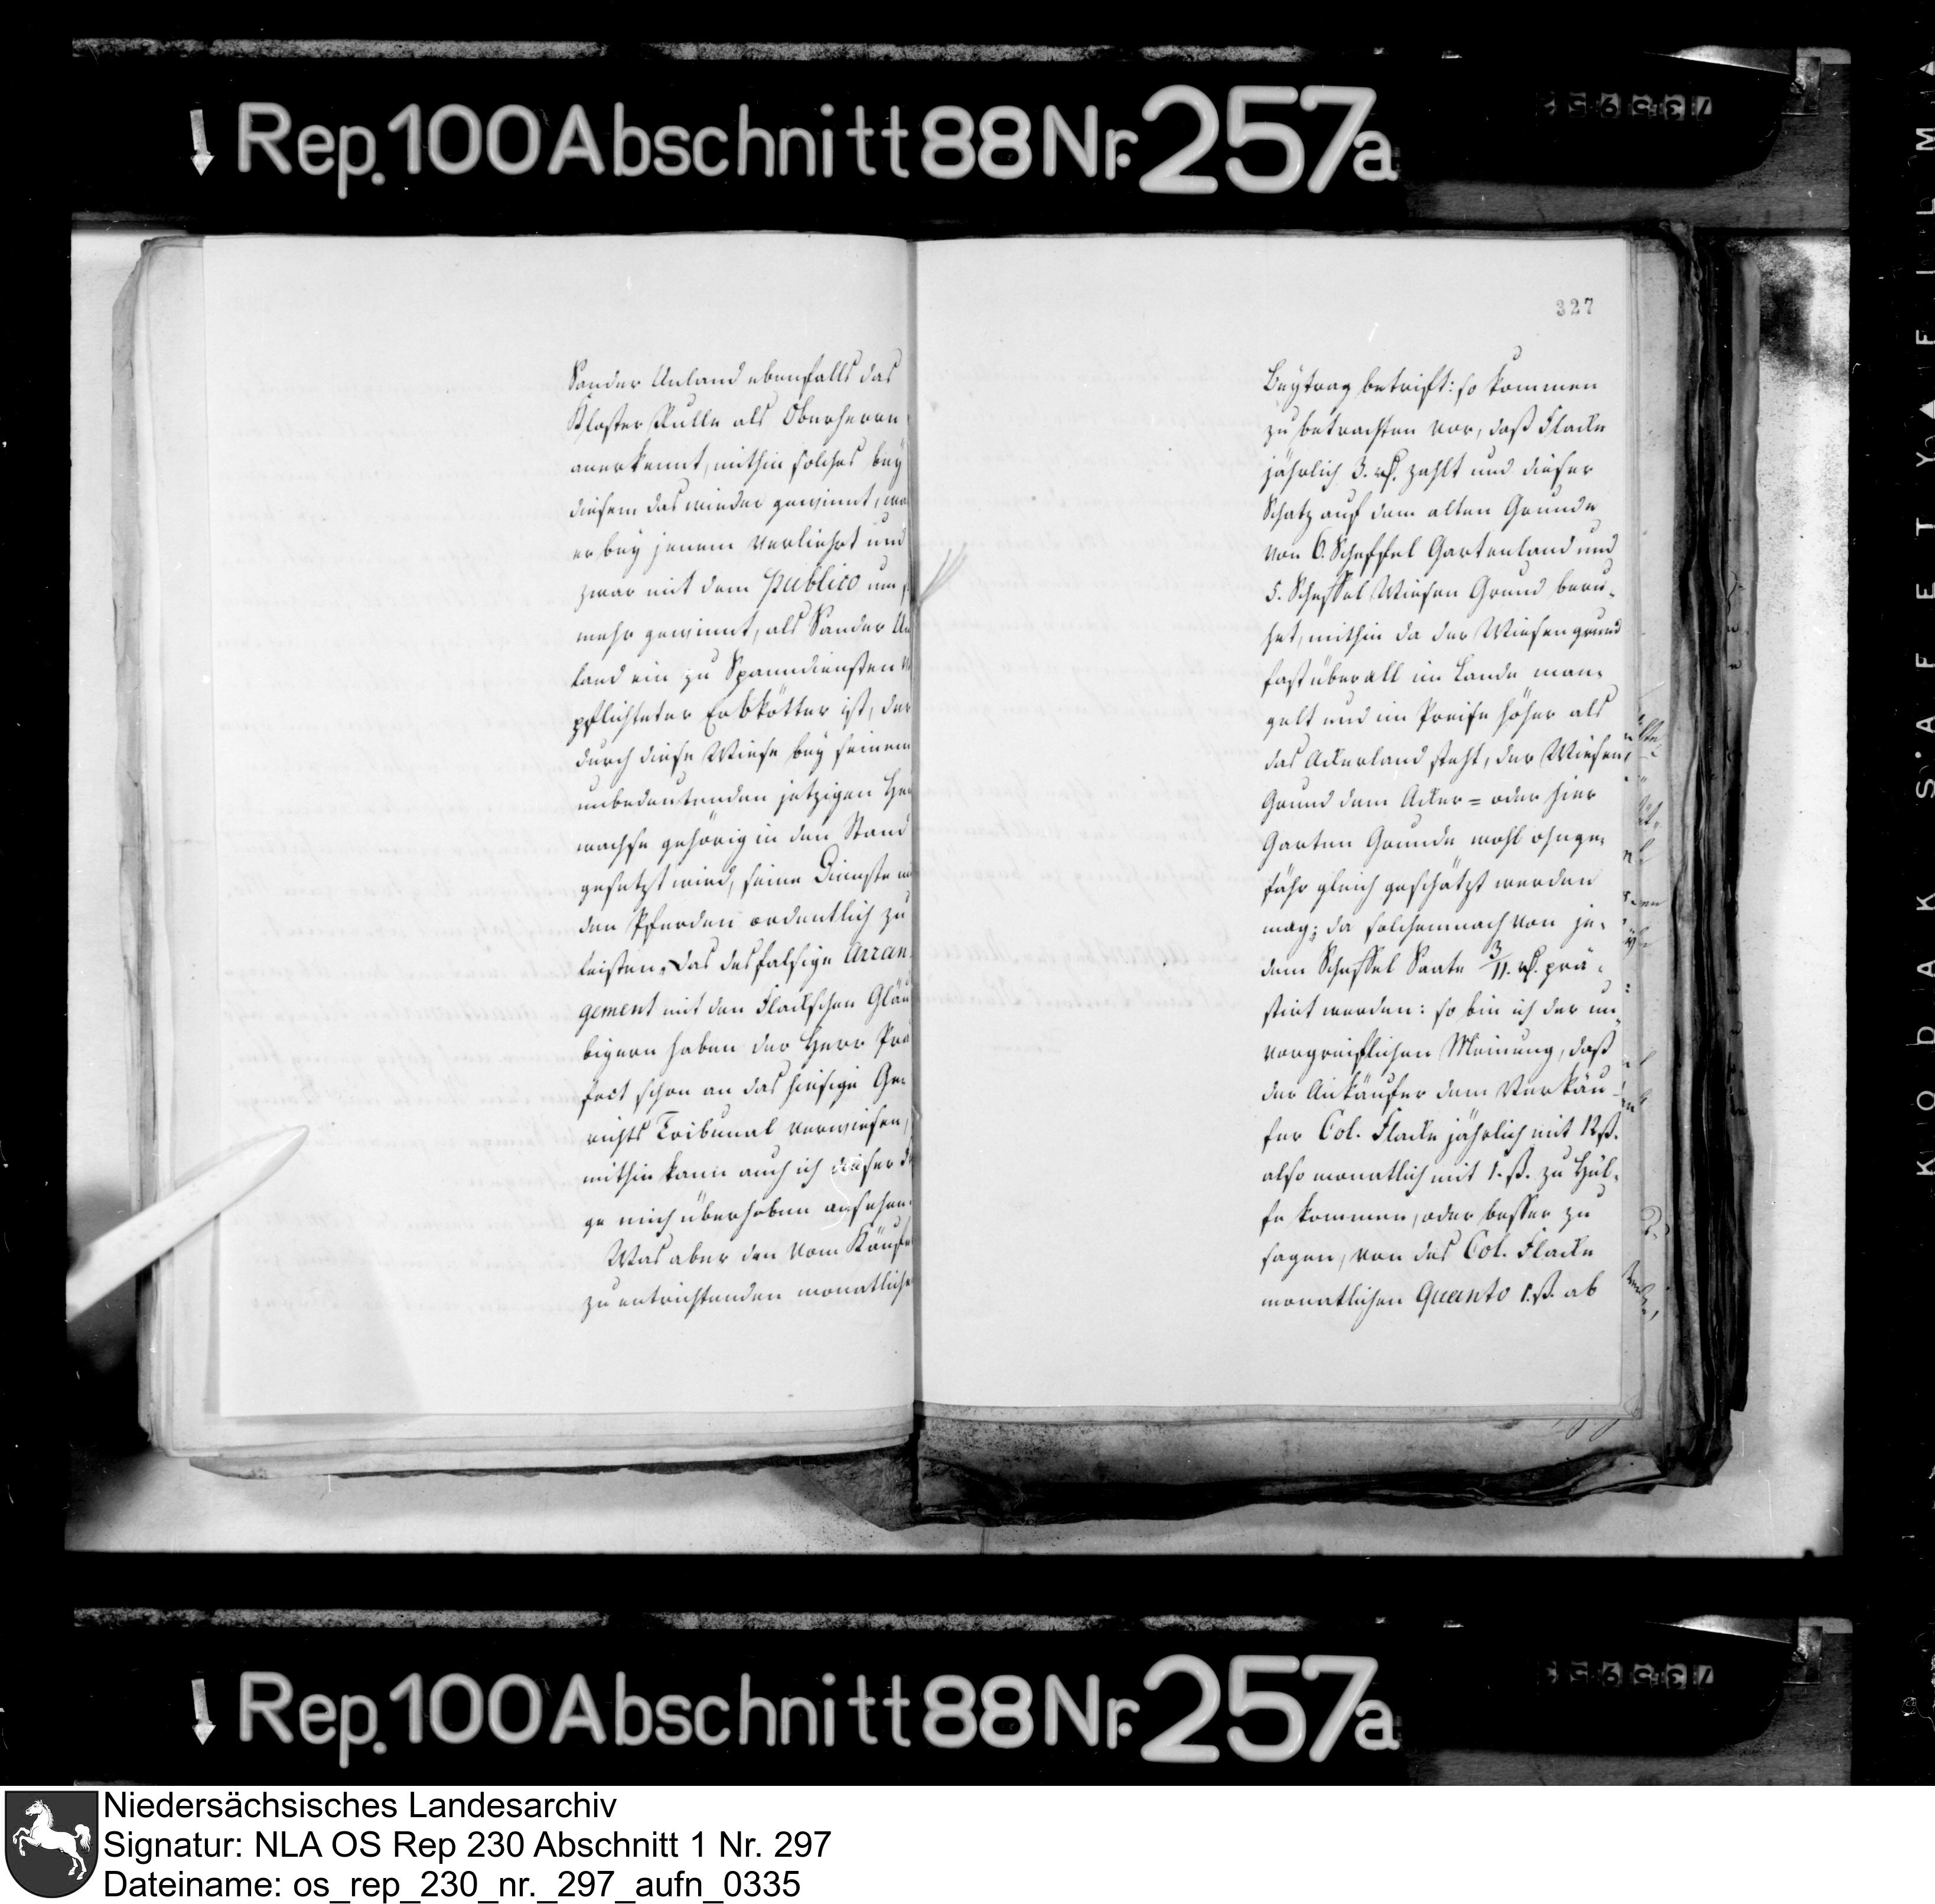 Rep. 100 Abschnitt 88 Nr. 257a
Sander Anland ebenfalls das
Kloster Rulle als Oberherrn
anerkennt, mithin solches bey
diesem das wieder gewinnt, wa
er bey jenem verliehrt und
zwar mit dem publico um
mehr gewinnt, als Sander An
land ein zu Spanndiensten
pflichteter Erbkötter ist, der
durch diese Wiese bey seinem
unbedeutenden jetzigen Heu
wachse gehörig in den Stand
gesetzt wird, seine Dienste
den Pferden ordentlich zu
leisten. Das desfalsige Arran
gement mit den Flackschen Gläu
bigern haben der Herr Prä
fect schon an das hiesige Ge-
richts Tribunal verwiesen,
mithin kann auch ich dieser
ge mich überhoben ansehen.
Was aber den vom Käufe
zu entrichtenden monatliche
327
Beytrag betrift: so kommen
zu betrachten vor, daß Flacke
jährlich 3. rt. zahlt und dieser
Schatz auf dem alten Grunde
von 6. Scheffel Gartenland und
5. Scheffel Wiesen Grund beru-
het, mithin da der Wiesengrund
fast überall im Lande man-
gelt und im Preise höher als
das Ackerland steht, der Wiesen
Grund dem Acker= oder hier
Garten Grunde wohl ohnge-
fähr gleich geschätzt werden
mag; da solchemnach von je-
dem Scheffel Saate 3/11. rt. prä-
stirt werden: so bin ich der un-
vorgreiflichen Meinung, daß
der Ankäufer dem Verkäu-
fer Col. Flacke jährlich mit 12 ß.
also monatlich mit 1. ß. zu Hül-
fe kommen, oder besser zu
sagen, von des Col. Flacke
monatlichen Quanto 1. ß. ab
Rep. 100 Abschnitt 88 Nr. 257a
KODAK SAFETY FILM
Niedersächsisches Landesarchiv
Signatur: NLA OS Rep 230 Abschnitt 1 Nr. 297
Dateiname: os_rep_230_nr._297_aufn_0335